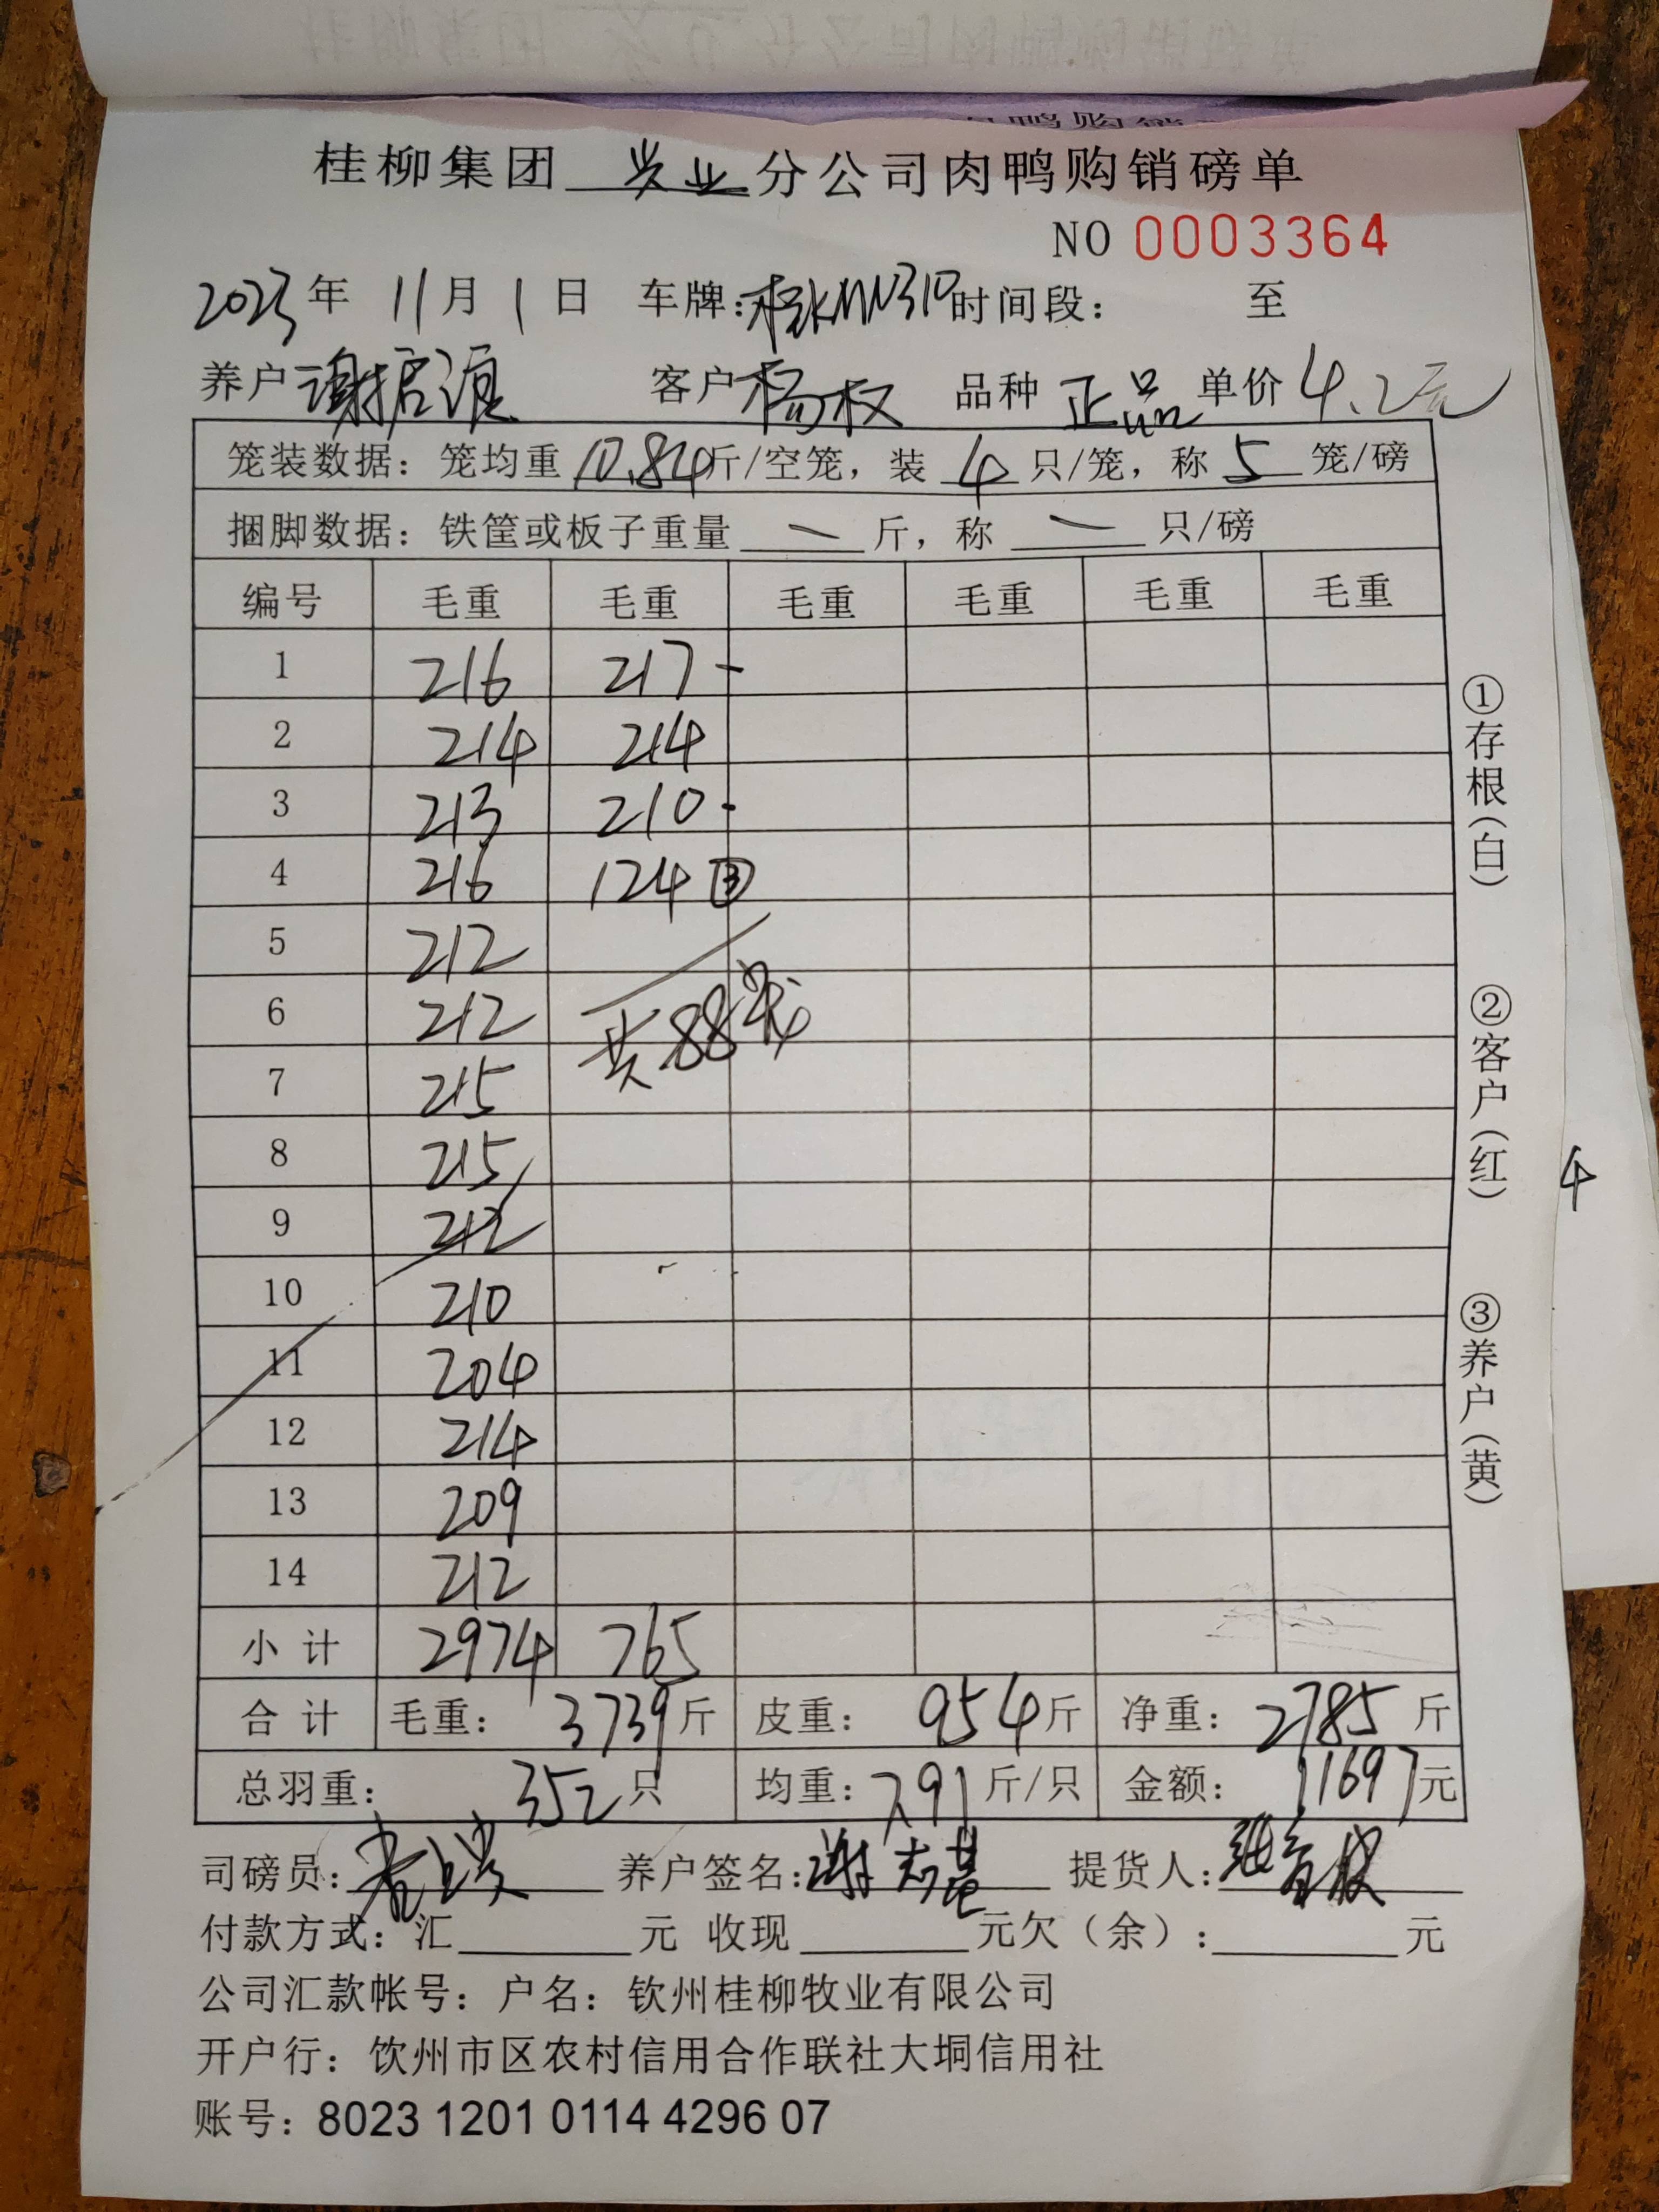 桂柳集团 兴业 分公司肉鸭购销磅单
NO 0003364
2023年 11月 1日 车牌: 时间段: 至
养户 谢 源 客户 杨权 品种 正品 单价 4.2元
笼装数据: 笼均重 10.84 斤/空笼, 装 4 只/笼, 称 5 笼/磅
捆脚数据: 铁筐或板子重量 — 斤, 称 — 只/磅
编号 毛重 毛重 毛重 毛重 毛重 毛重
1 216 217 -
2 214 214
3 213 210 -
4 216 124 ③
5 212
6 212 共88笼
7 215
8 215
9 212
10 210
11 204
12 214
13 209
14 212
小计 2974 765
合计 毛重: 3739斤 皮重: 954斤 净重: 2785斤
总羽重: 352只 均重: 7.91斤/只 金额: 11697元
司磅员: 养户签名: 谢 提货人:
付款方式: 汇 元 收现 元欠(余): 元
公司汇款帐号: 户名: 钦州桂柳牧业有限公司
开户行: 饮州市区农村信用合作联社大垌信用社
账号: 8023 1201 0114 4296 07
①存根(白)
②客户(红)
③养户(黄)
4